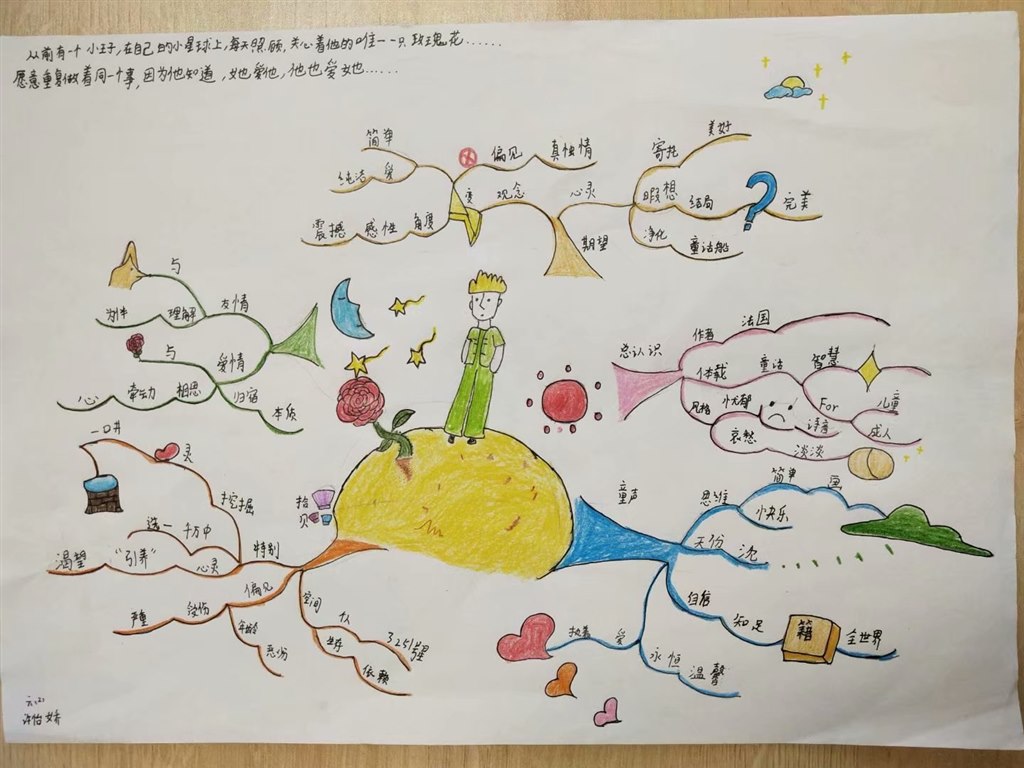 从前有一个小王子,在自己的小星球上,每天照顾,关心着他的唯一一只玫瑰花......
愿意重复做着同一个事,因为他知道,她爱他,他也爱她......
简单
纯洁 爱
震撼 感性 角度
变
偏见 真性情
观念
心灵
期望
寄托 美好
暇想 结局 ? 完美
净化 童话船
与
友情
为伴 理解
与
爱情
心 牵动力 相思
归宿
本质
总认识
作者 法国
体裁 童话 智慧
For 儿童
成人
风格 忧郁
诗意
哀愁 淡淡
一口井
灵
挖掘
选一 千万中
渴望 "引养" 心灵
特别
拾贝
偏见
严重 受伤
年龄
空间
生存
依赖
3251号星
童声
思维 简单 画
快乐
天份
归宿
知足 籍 全世界
执着 爱
永恒 温馨
六(2)
许怡